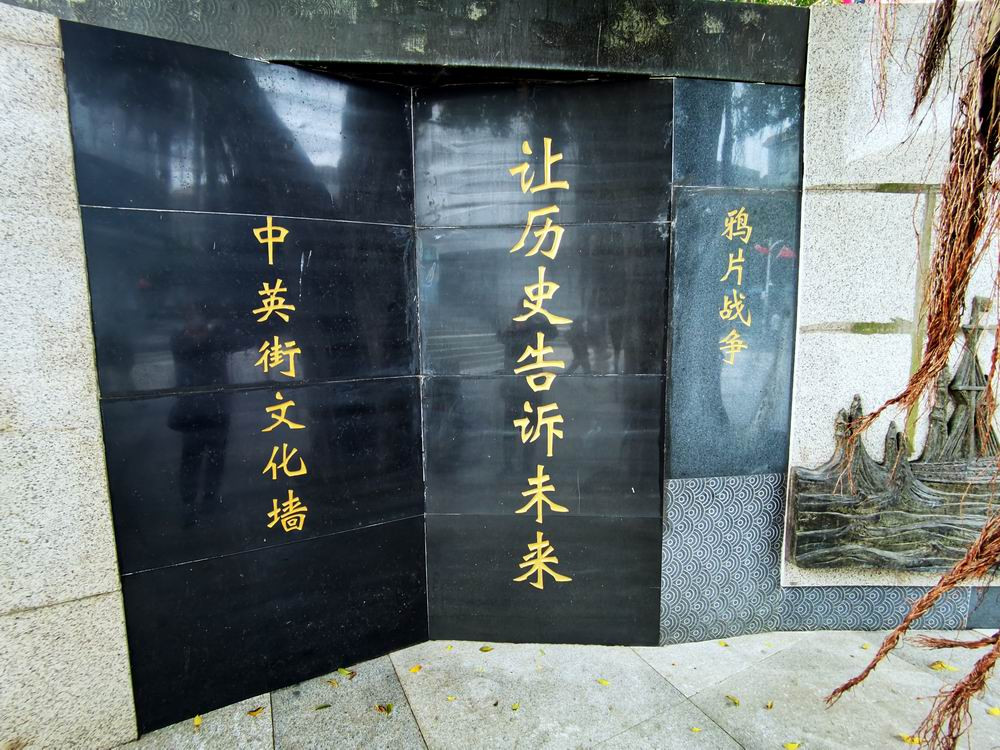 中英街文化墙
让历史告诉未来
鸦片战争